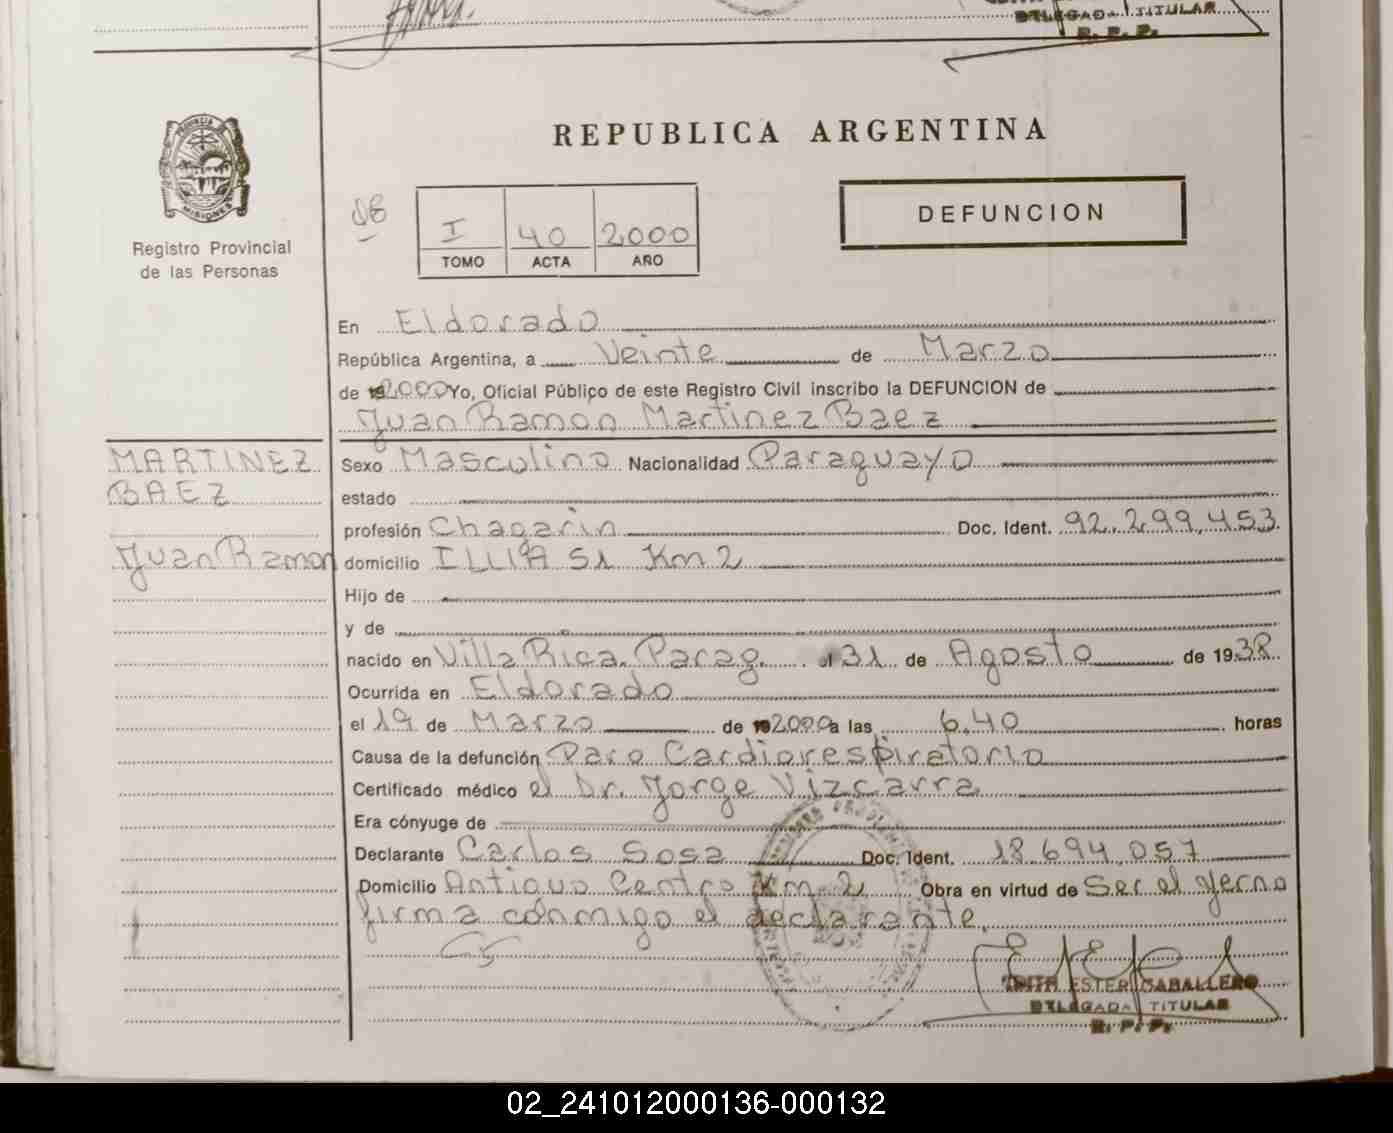 DELEGADA TITULAR
R. P. P.
PROVINCIA DE
MISIONES
Registro Provincial
de las Personas
REPUBLICA ARGENTINA
I 40 2000
TOMO ACTA AÑO
DEFUNCION
En Eldorado
República Argentina, a Veinte de Marzo
de 2000 Yo, Oficial Público de este Registro Civil inscribo la DEFUNCION de
Juan Ramon Martinez Baez
MARTINEZ
BAEZ
Juan Ramon
Sexo Masculino Nacionalidad Paraguayo
estado
profesión Chagarin Doc. Ident. 92.299.453
domicilio ILLIA S1 Km 2
Hijo de
y de
nacido en Villa Rica. Parag. el 31 de Agosto de 1938
Ocurrida en Eldorado
el 19 de Marzo de 2000 a las 6.40 horas
Causa de la defunción Paro Cardiorespiratorio
Certificado médico el Dr. Jorge Vizcarra
Era cónyuge de
Declarante Carlos Sosa Doc. Ident. 18.694.057
Domicilio Antiguo Centro Km 2 Obra en virtud de Ser el yerno
firma conmigo el declarante.
EDITH ESTER CABALLERO
DELEGADA TITULAR
R. P. P.
02_241012000136-000132